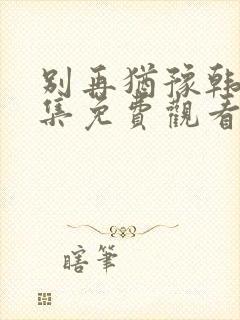 别再猶豫韩
集免費觀看
瞎筆